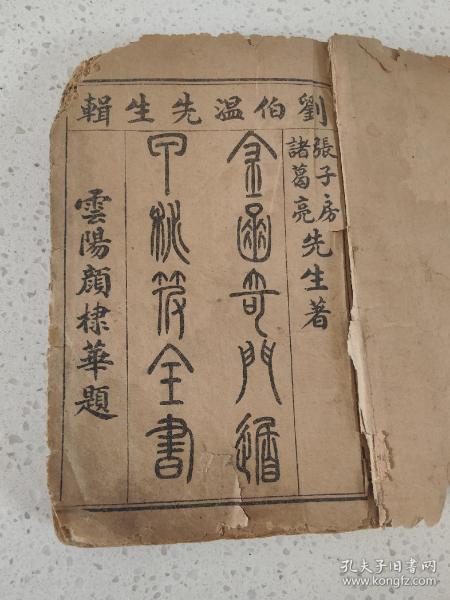 劉伯溫先生輯
張子房
諸葛亮
先生著
金函奇門遁
甲秘笈全書
雲陽顏棣華題
孔夫子旧书网
www.kongfz.com